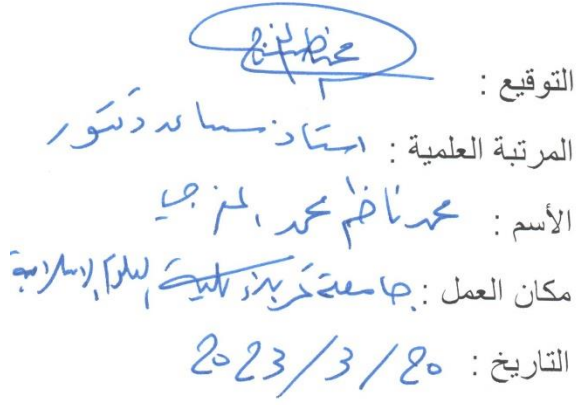 التوقيع :
المرتبة العلمية : استاذ مساعد دكتور
الأسم : محمد ناظم محمد
مكان العمل : جامعة كربلاء كلية العلوم الاسلامية
التاريخ : 2023/3/20